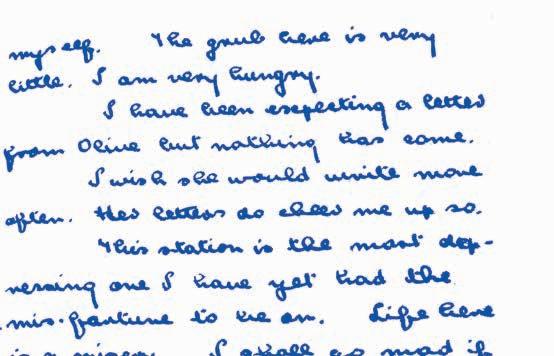 myself. The grub here is very
little. I am very hungry.
I have been expecting a letter
from Olive but nothing has come.
I wish she would write more
often. Her letters do cheer me up so.
This station is the most dep-
ressing one I have yet had the
mis-fortune to be on. Life here
is a misery. I shall go mad if